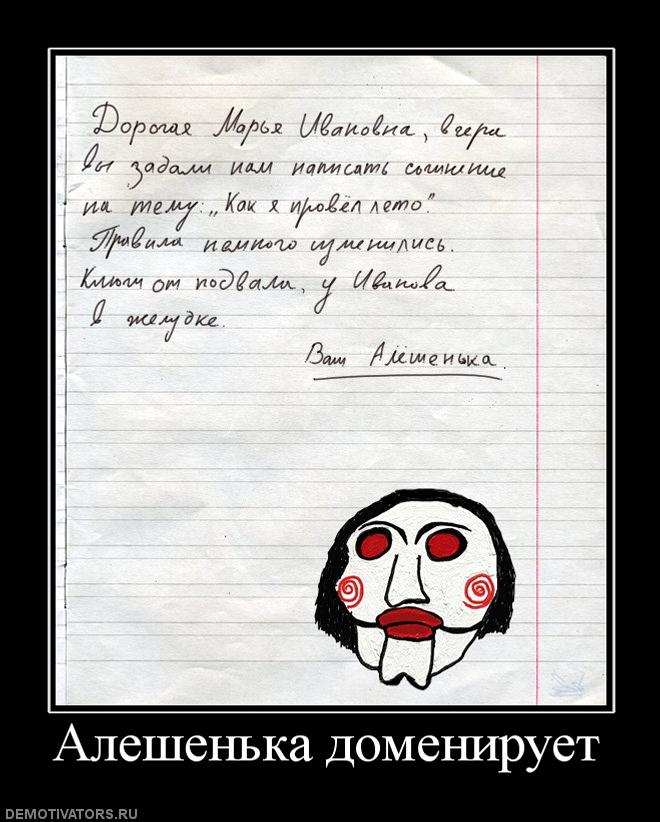 Дорогая Марья Ивановна, вчера
Вы задали нам написать сочинение
на тему: „Как я провёл лето".
Правила немного изменились.
Ключи от подвала, у Иванова
в желудке.
Ваш Алёшенька.
Алешенька доменирует
DEMOTIVATORS.RU